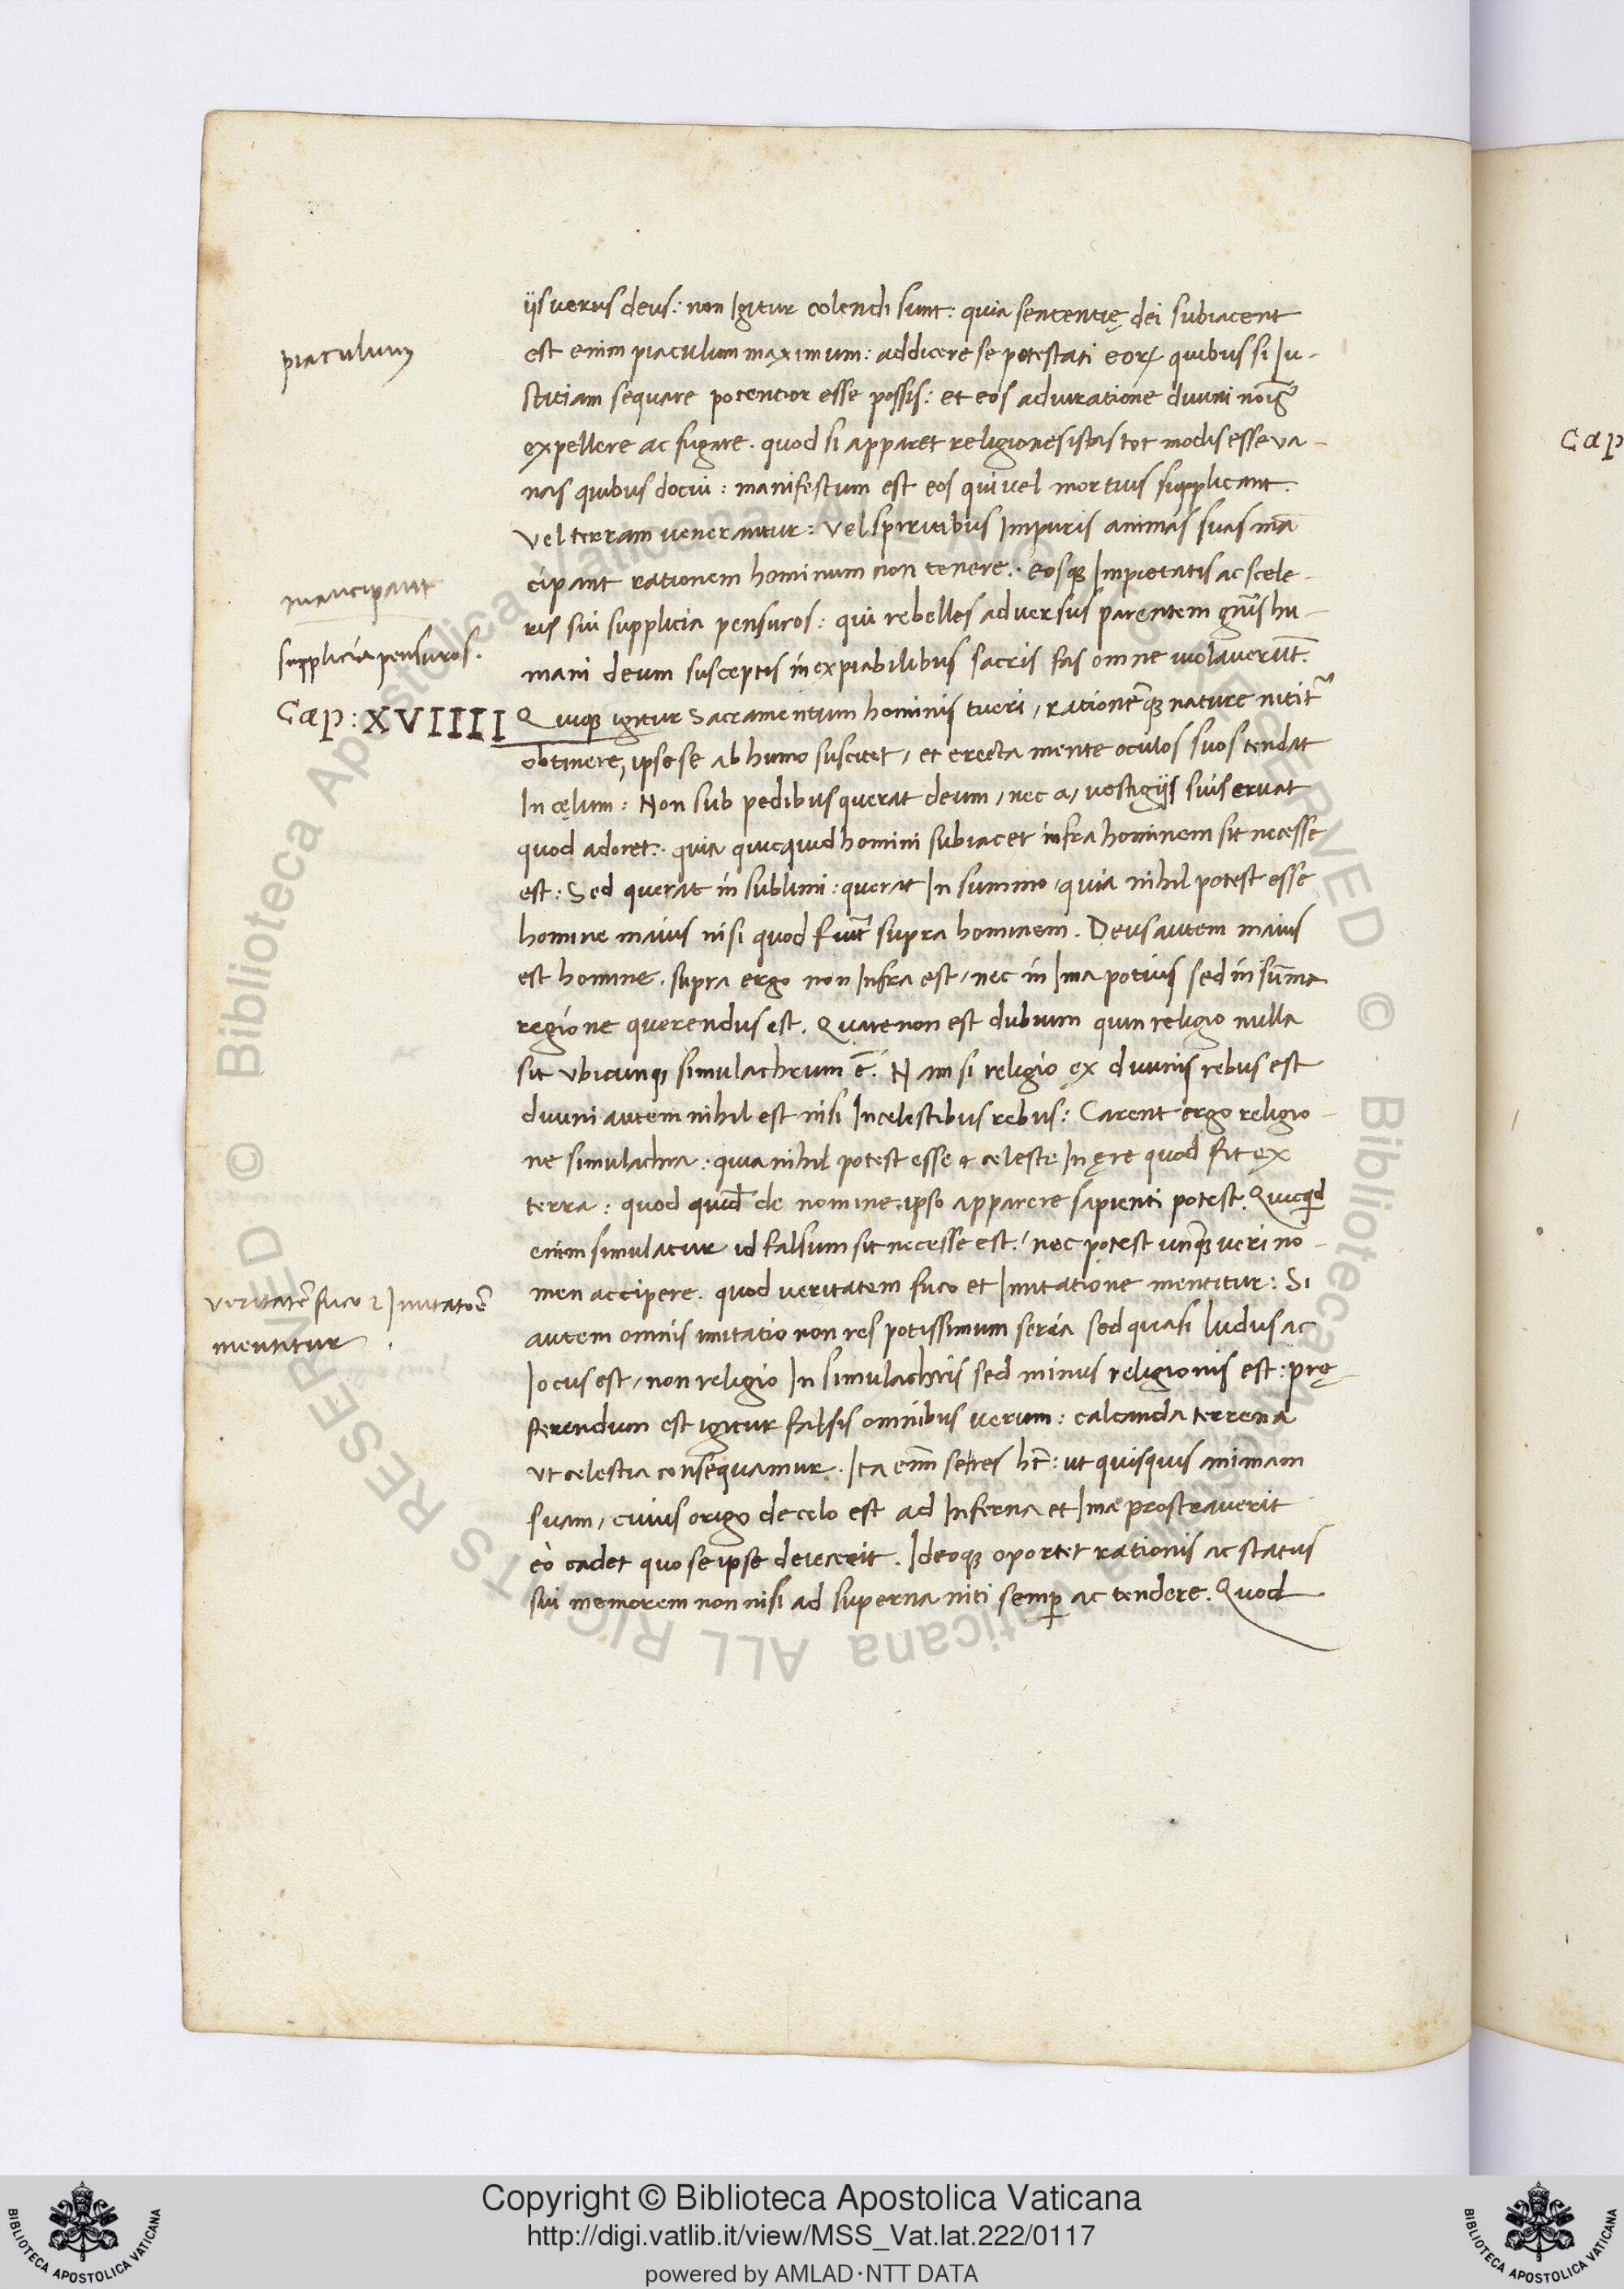 iis verus deus: non Igitur colendi sunt: quia sententię dei subiacent
piaculum
est enim piaculum maximum: addicere se potestati eorꝝ quibus si Iu-
stitiam sequare potentior esse possis: et eos adiuratione diuini noīs
expellere ac fugare. quod si apparet religiones istas tot modis esse va-
nas quibus docui: manifestum est eos qui vel mortuis supplicant.
Vel terram venerantur: Vel spiritibus Impuris animas suas mā
mancipant
cipant rationem hominum non tenere. eosqꝫ Impietatis ac scele-
supplicia pensuros.
ris sui supplicia pensuros: qui rebelles adversus parentem gn̄is hu-
mani deum susceptis inexpiabilibus sacris fas omne uiolaverūt.
Cap: XVIIII
Quiqꝫ igitur Sacramentum hominis tueri, rationēqꝫ nature nitit᷑
obtinere, ipse se ab humo suscitet, et erecta mente oculos suos tendat
In cęlum: Non sub pedibus querat deum, nec a, vestigiis suis eruat
quod adoret. quia quicquid homini subiacet infra hominem sit necesse
est: Sed querat in sublimi: querat In summo, quia nihil potest esse
homine maius nisi quod fuit supra hominem. Deus autem maius
est homine. supra ergo non Infra est, nec in Ima potius sed in sūma
regione querendus est. Quare non est dubium quin religio nulla
sit vbicunqꝫ simulachrum ē. Nam si religio ex diuinis rebus est
diuini autem nihil est nisi In celestibus rebus: Carent ergo religio-
ne simulachra: quia nihil potest esse celeste In ęre quod fit ex
terra: quod quid̄ de nomine ipso apparere sapienti potest. Quicqd
enim simulatur id falsum sit necesse est. nec potest unq̄ꝫ ueri no-
veritatē fuco ⁊ Imitatōē
men accipere. quod veritatem fuco et Imitatione mentitur: Si
mentitur.
autem omnis imitatio non res potissimum seria sed quasi ludus ac
Iocus est, non religio In simulachris sed minus religionis est: prę-
ferendum est igitur falsis omnibus verum: calcanda terrena
vt celestia consequamur. Ita enī se res ht̄: ut quisquis animam
suam, cuius origo de celo est ad Inferna et Ima prostraverit
eò cadet quo se ipse deiecerit. Ideoqꝫ oportet rationis ac status
sui memorem non nisi ad superna niti semꝑ ac tendere. Quod
Cap
Copyright © Biblioteca Apostolica Vaticana
http://digi.vatlib.it/view/MSS_Vat.lat.222/0117
powered by AMLAD·NTT DATA
BIBLIOTECA APOSTOLICA VATICANA
BIBLIOTECA APOSTOLICA VATICANA
© Biblioteca Apostolica Vaticana ALL RIGHTS RESERVED © Biblioteca Apostolica Vaticana ALL RIGHTS RESERVED